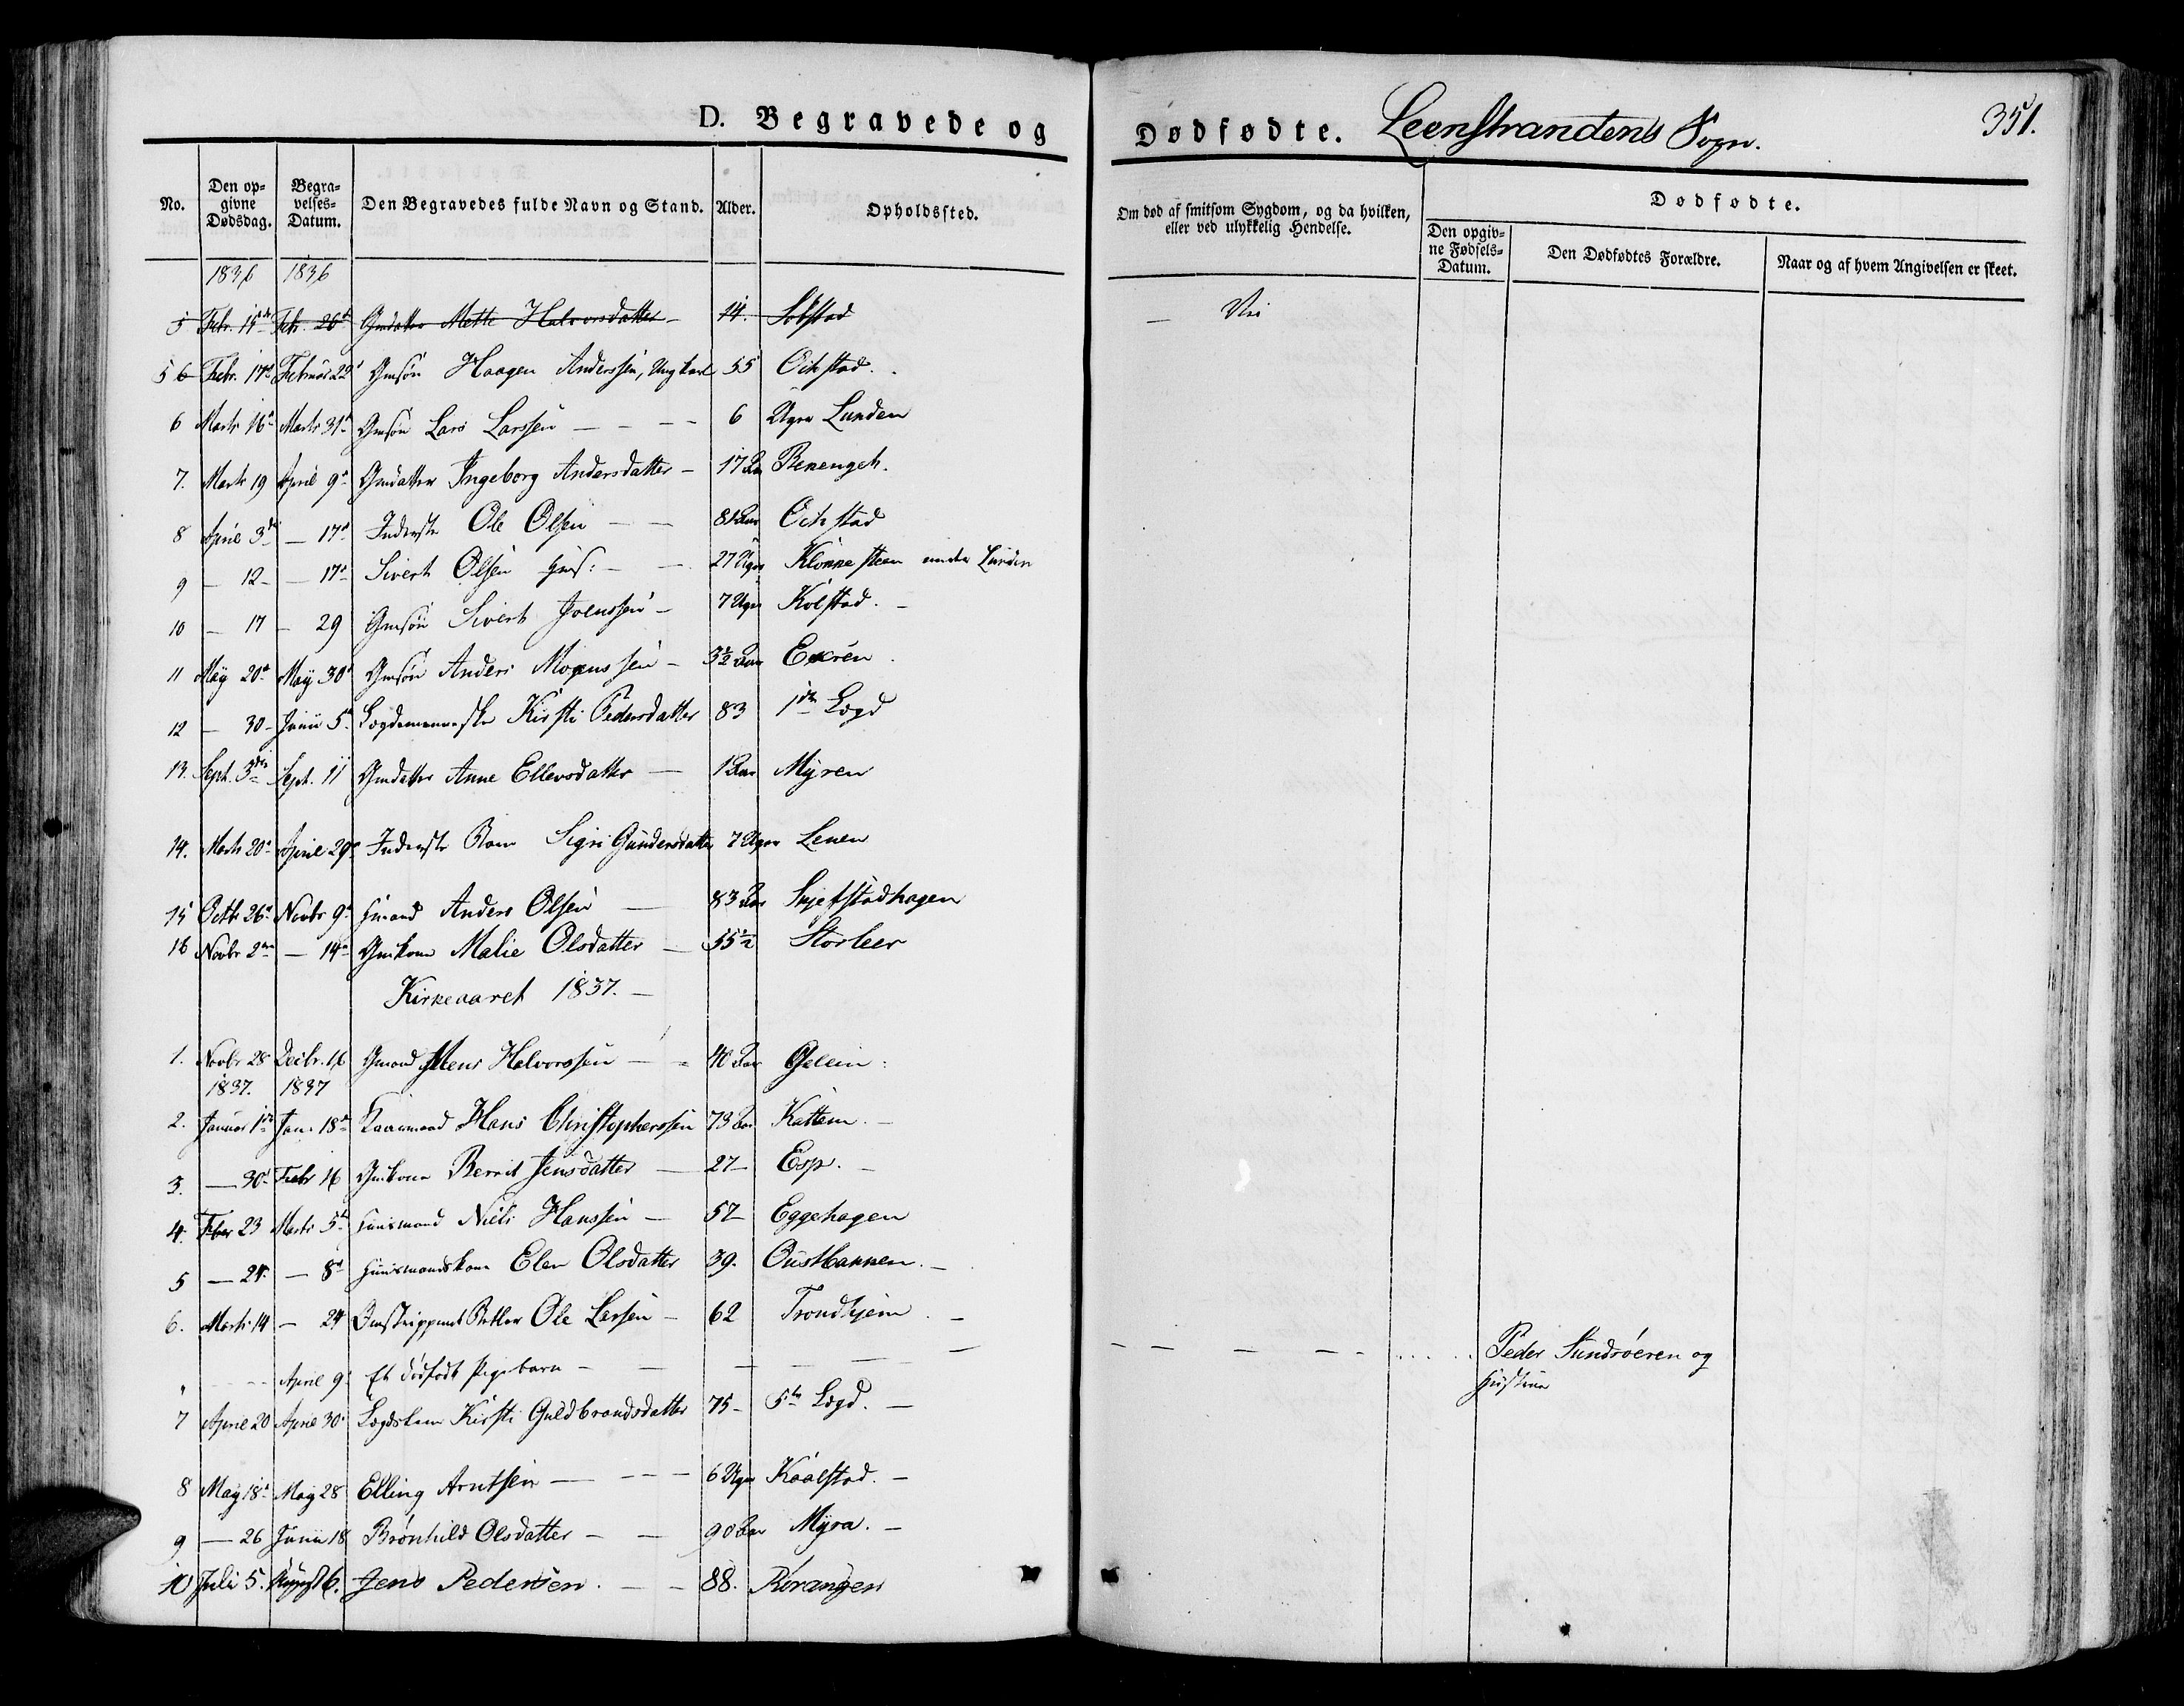 D. Begravede og
Dødfødte. Leenstrandens Sogn.
351.
No.
Den op-
givne
Dødsdag.
Begra-
velses-
Datum.
Den Begravedes fulde Navn og Stand.
Alder.
Opholdssted.
Om død af smitsom Sygdom, og da hvilken,
eller ved ulykkelig Hendelse.
Dødfødte.
Den opgiv-
ne Fødsels-
Datum.
Den Dødfødtes Forældre.
Naar og af hvem Angivelsen er skeet.
1836 1836
5 Febr. 15de Febr. 26d Gmdatter Mette Halvorsdatter - 14.
5 6 Febr. 17d Februar 22d Gmsøn Haagen Anderssen, Ungkarl 55 Oihstad.
6 Marts 16d Marts 31d Gmsøn Lars Larssen - - - 6 Uger Lunden
7. Marts 19 April 9d Gmdatter Ingeborg Andersdatter - 17 Aar
8 April 3de - 17d Inderste Ole Olsen - - 81 Aar Oihstad
9 - 12 - - 17d Sivert Olsen - - 27 Uger under Lunden
10 - 17 - 29 Gmsøn Sivert Joenssen - 7 Uger Kolstad. -
11 May 20d May 30d Gmsøn Anders Mogenssen - 3½ Aar
12 - 30 - Junii 5t Lægdemenneske Kirsti Pedersdatter 83 1ste Lægd
13. Sept. 3die Sept. 11 Gmdatter Anne Ellevsdatter - 1 Aar Myren
14. Marts 20d April 29d Inderste Barn Sigri Gundersdatter 7 Uger Lenen
15 Octbr 26d Novbr 9d Hmand Anders Olsen - 83 Aar Skjefstadhagen
16 Novbr 2den - 14d Gmkone Malie Olsdatter - 55½ Storleer
Kirkeaaret 1837. -
1. Novbr 28 Decbr. 16 Gmand Mens Halvorssen - - 40 Aar
1837. 1837
2. Januar 1ste Jan. 18d Kaarmand Hans Christopherssen 73 Aar Kattem. -
3. - 30d Febr 16 Gmkone Berrit Jensdatter - 27 - Esp. -
4. Febr 23 Marts 5t Huusmand Niels Hanssen - 57 - Eggehagen
5 - 24. - 8d Huusmandskone Elen Olsdatter 39. Oustbakken. -
6. Marts 14 - 24 Omstrippende Betler Ole Larsen - 62 Trondhjem. -
" - - - April 9. Et dødfødt Pigebarn - - - - - - - - - - - . . . . Peder Sundsøeren og
Hustrue
7 April 20 April 30d Lægdskone Kirsti Guldbrandsdatter 75 - 5te Lægd. -
8 May 18d May 28 Elling Arntsen - - - - 6 Uger Kaalstad. -
9 - 26 Junii 18 Brønhild Olsdatter - - 90 Aar Myra. -
10 Juli 5. August 6. Jens Pedersen. - - 88. Rørangen